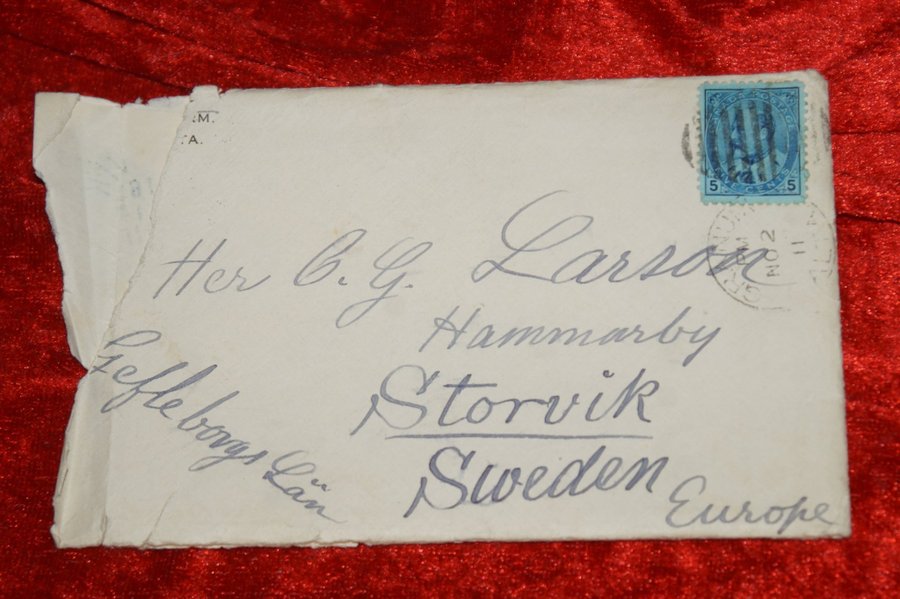 .M.
.A.
5 CENTS 5
PM
NO 2
11
Her C. G. Larson
Hammarby
Storvik
Sweden
Europe
Gefleborgs Län